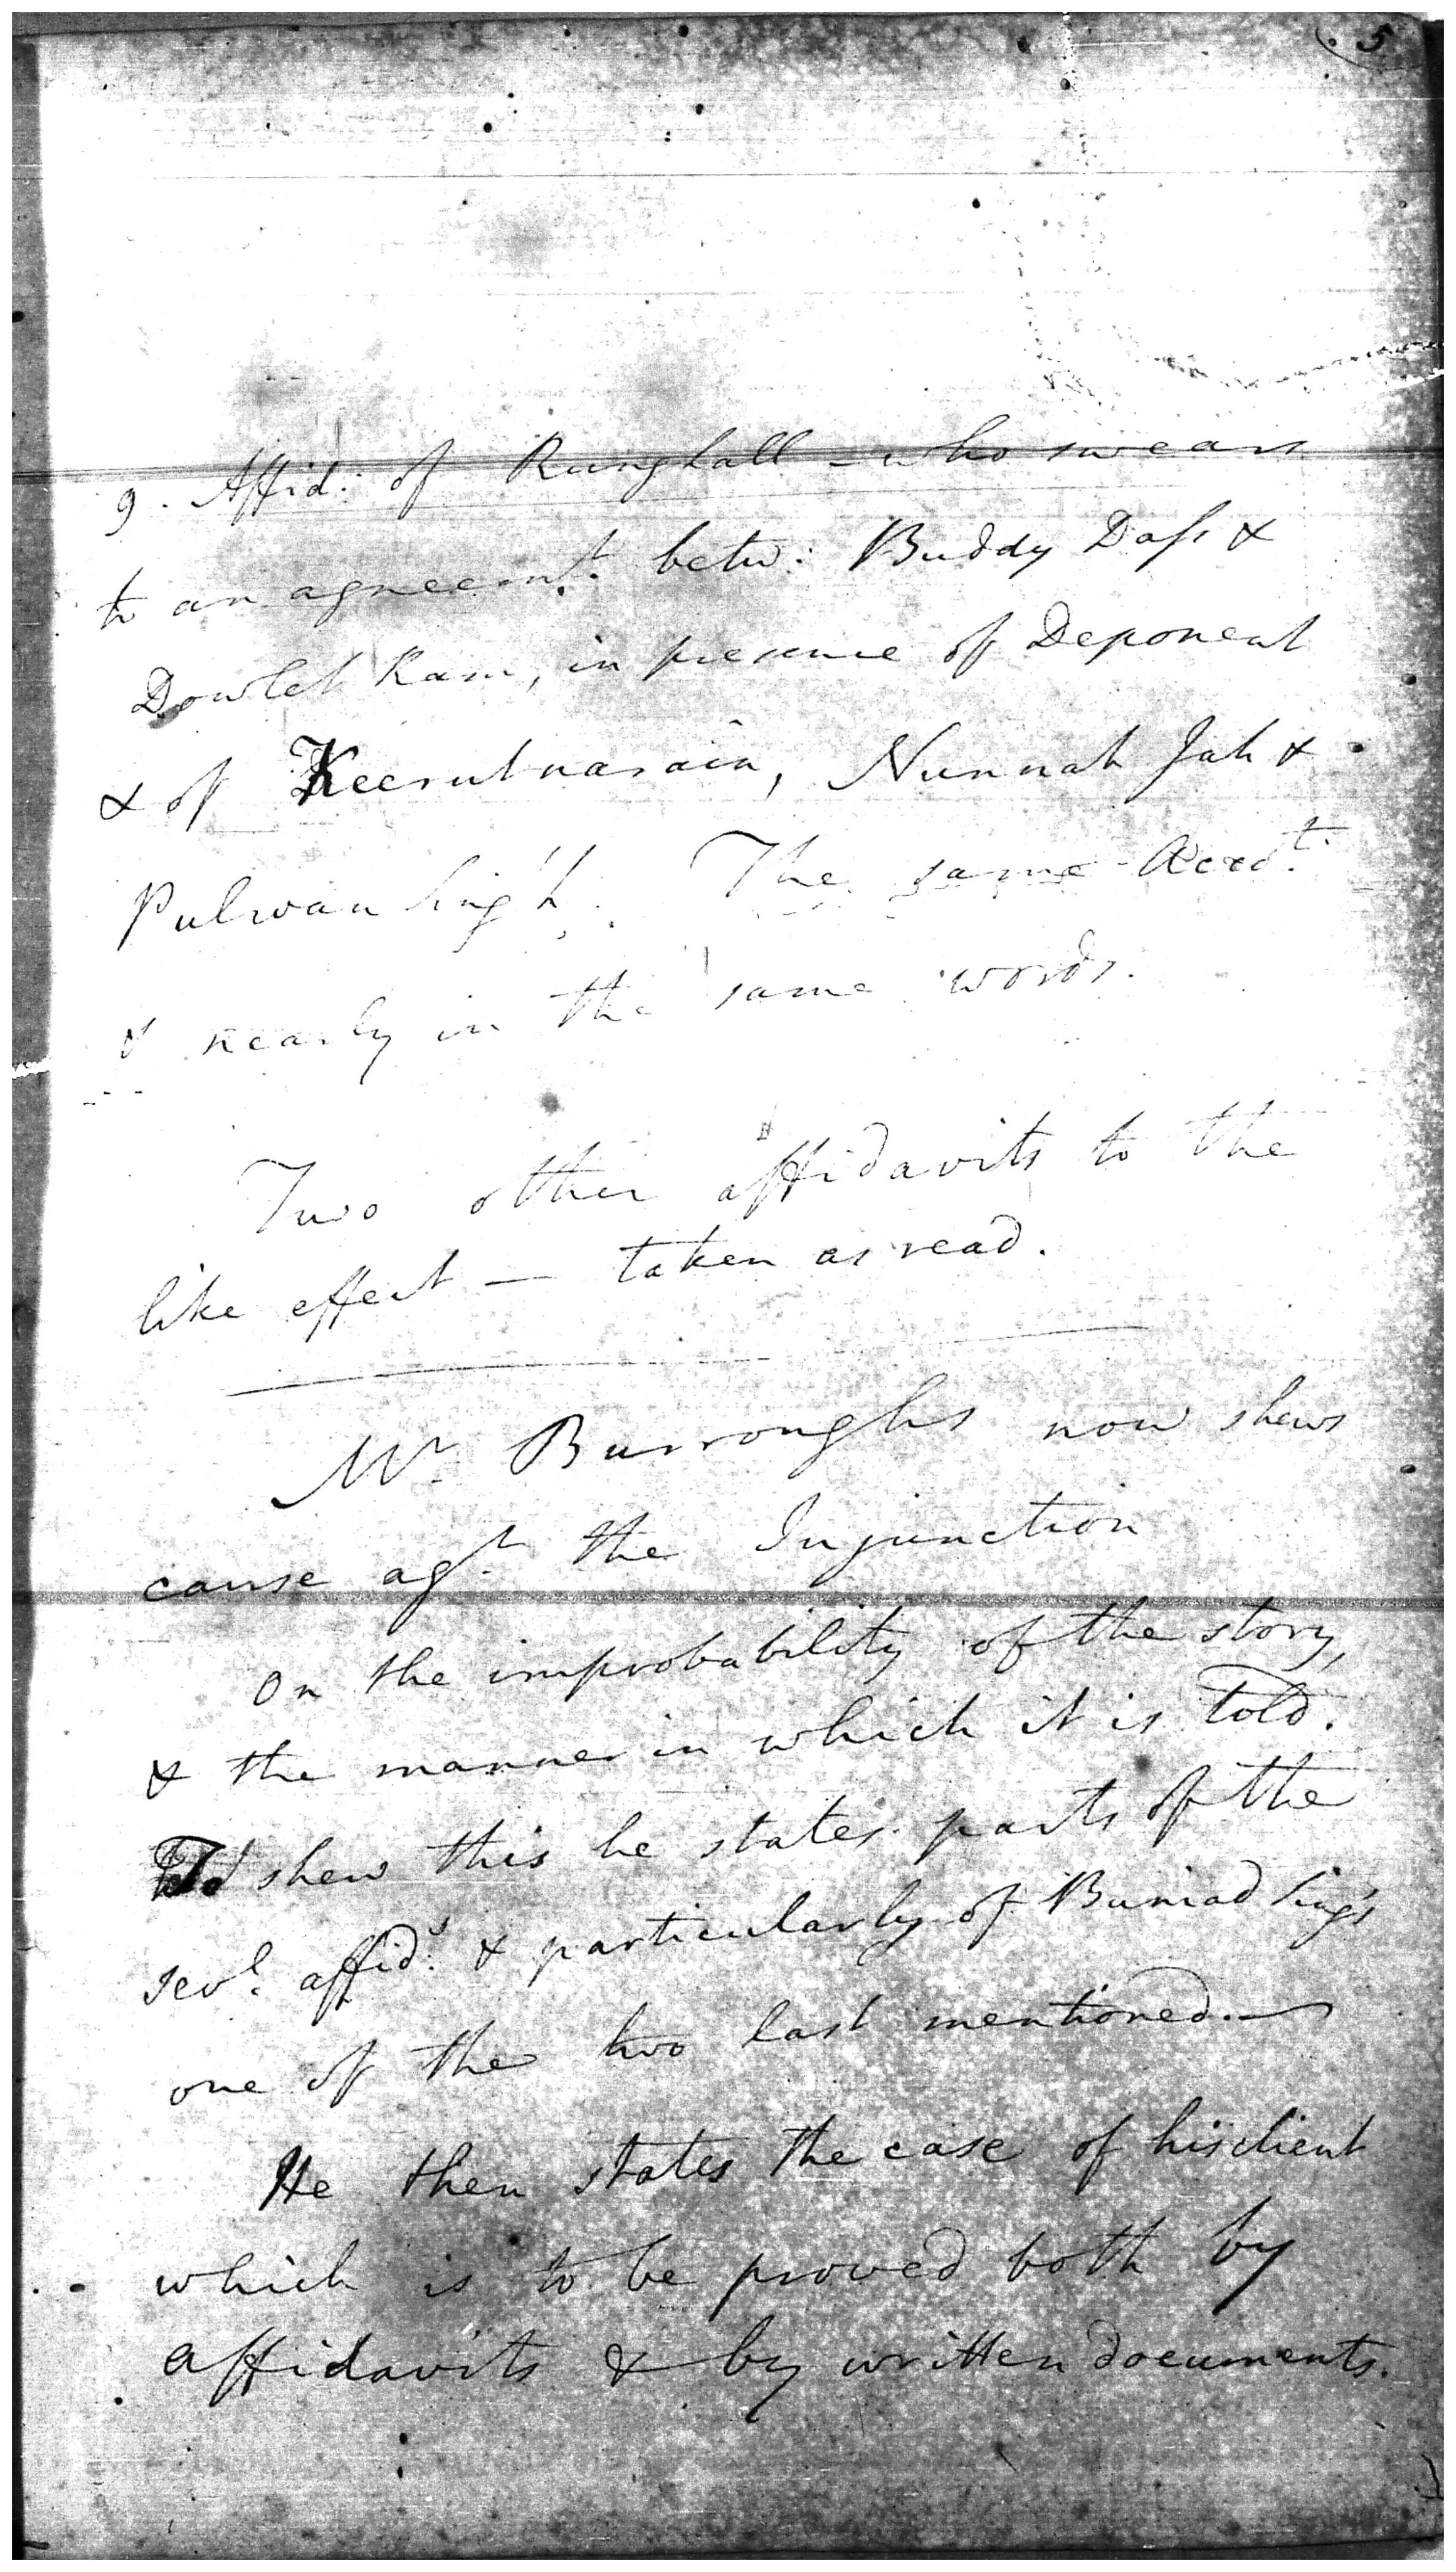 5
9. Affid: of Runglall - who swears
to an agreemt. betw: Buddy Dass &
Dowlet Ram, in presence of Deponent
& of Keerutnarain, Nunnah Jah &
Pulwan Sing'h. The same Acco.t
& nearly in the same words.
Two other affidavits to the
like effect — taken as read.
Mr. Burroughs now shews
cause agt. the Injunction
On the improbability of the story,
& the manner in which it is told.
To shew this he states parts of the
sevl. affid.s & particularly of Buniad Sing's
one of the two last mentioned.—
He then states the case of his client
which is to be proved both by
affidavits & by written documents.